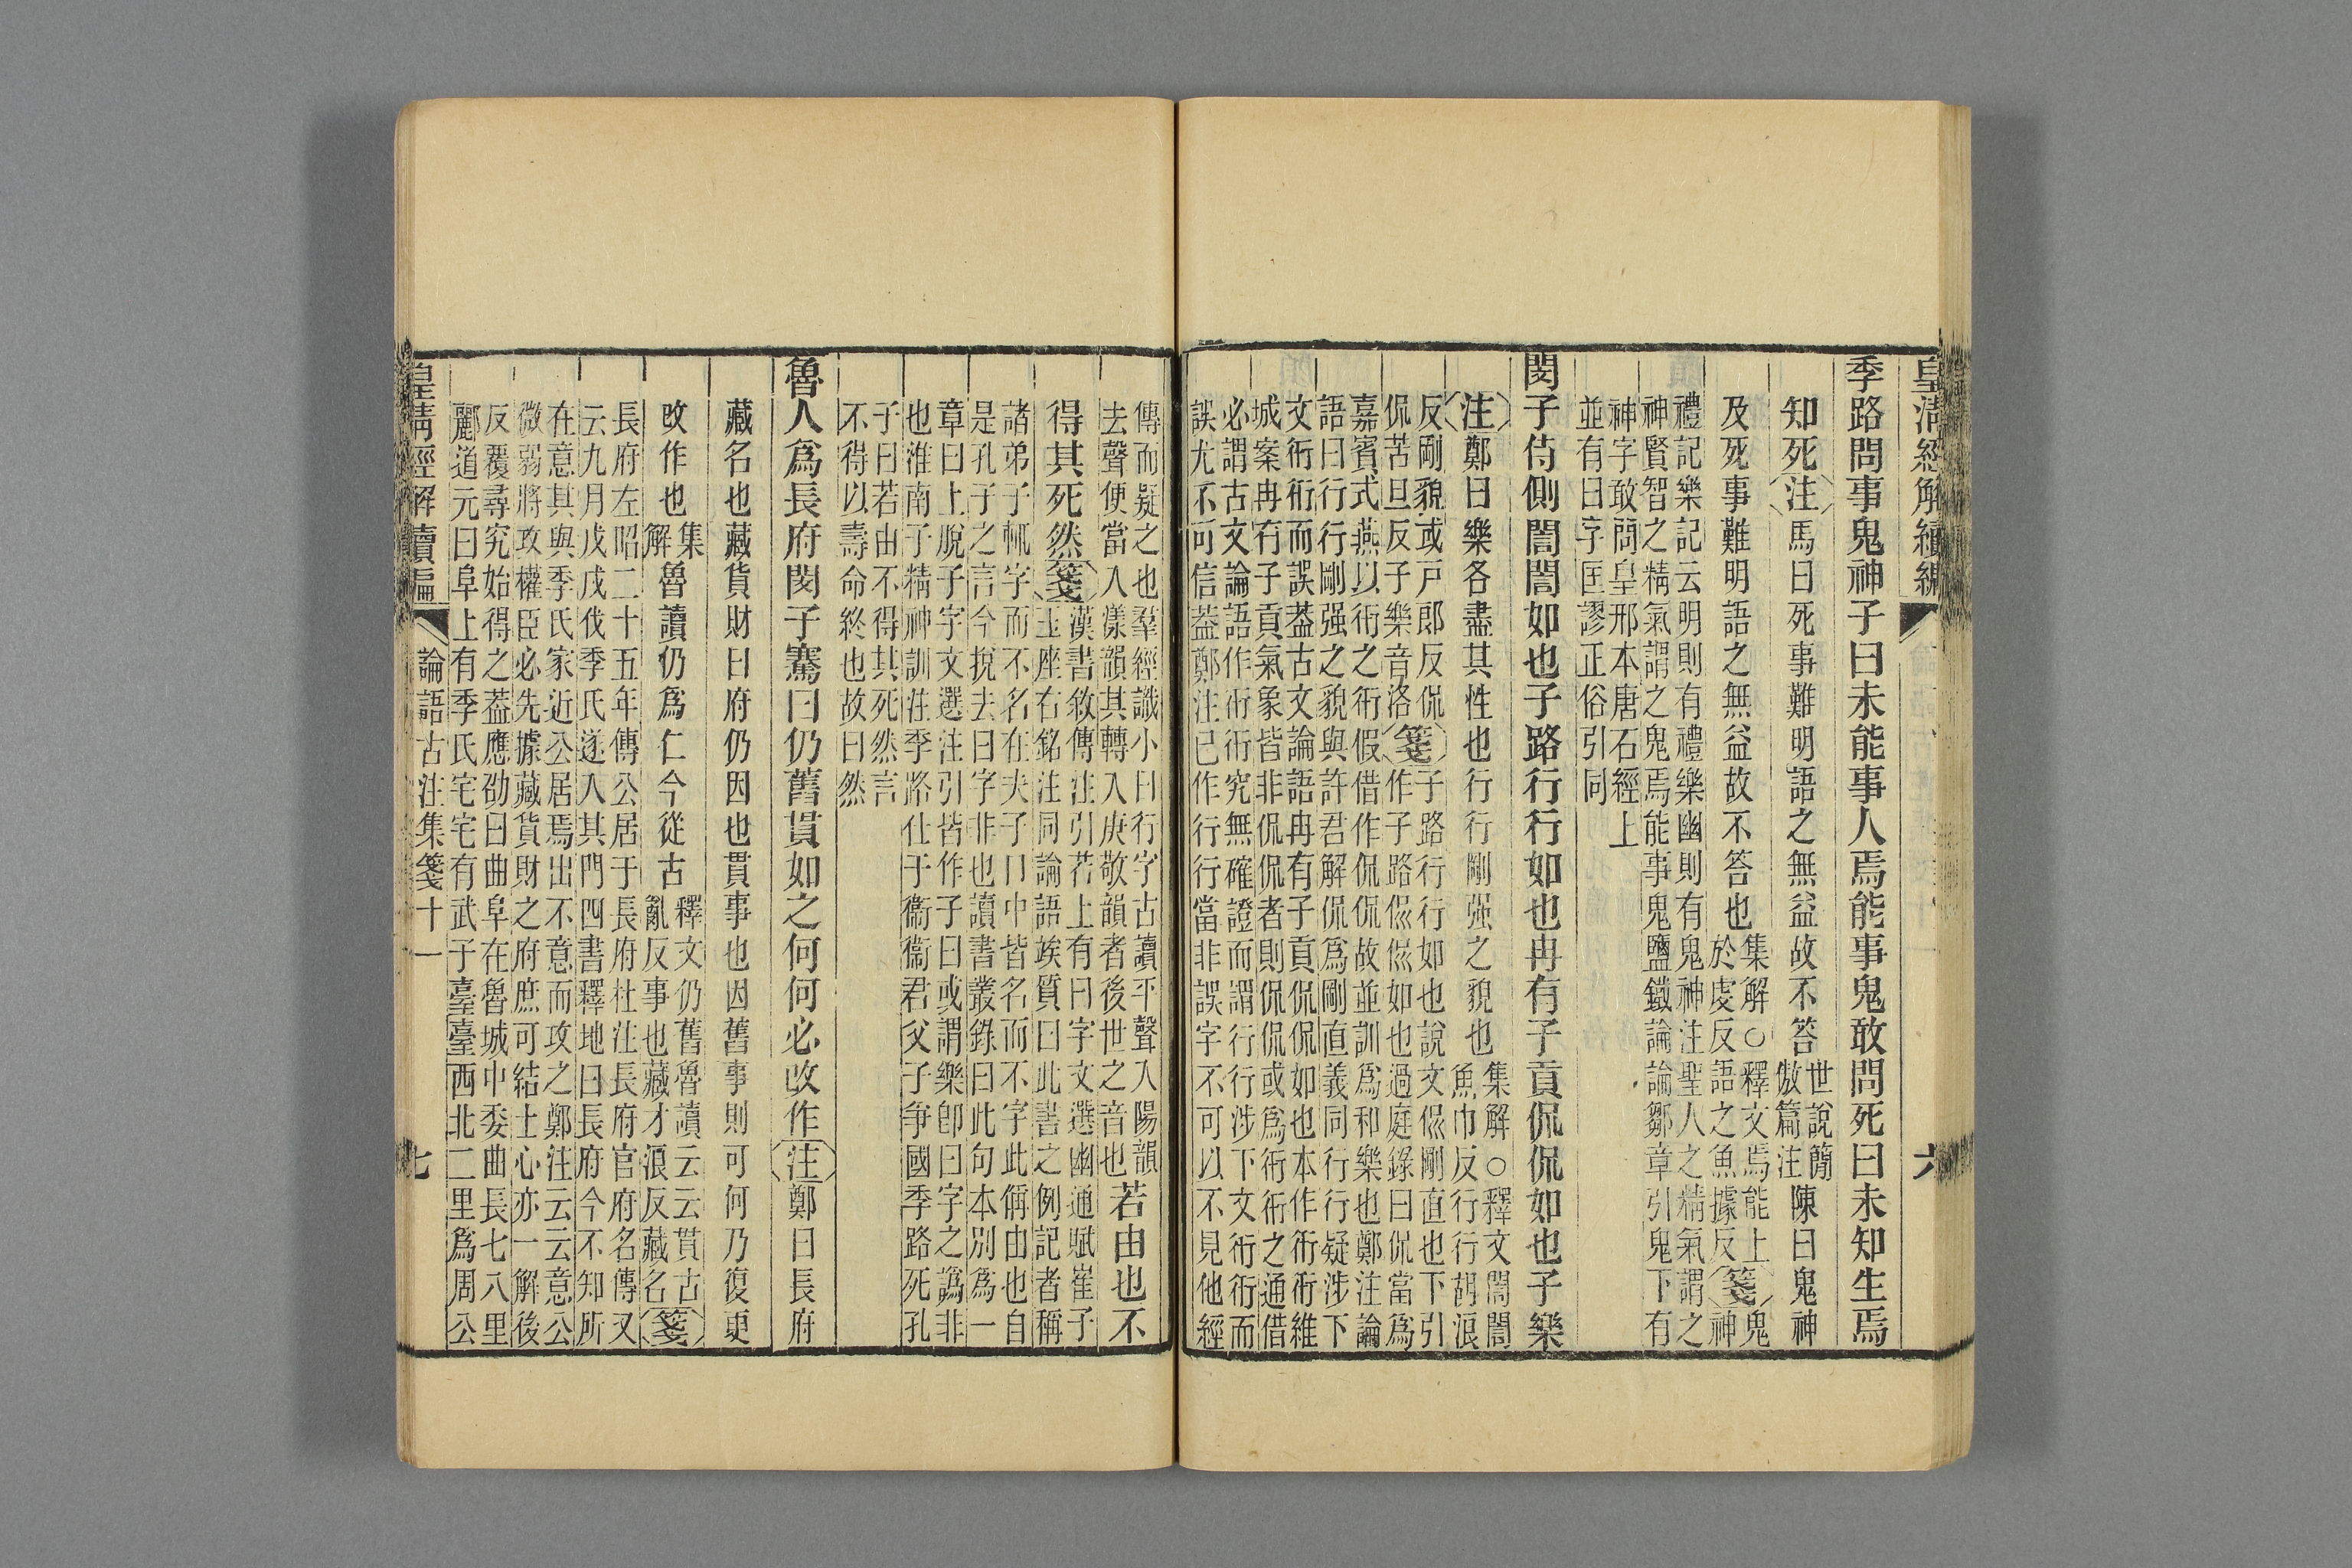 皇清經解續編
六
季路問事鬼神子曰未能事人焉能事鬼敢問死曰未知生焉
知死注馬曰死事難明語之無益故不答世說簡傲篇注陳曰鬼神
及死事難明語之無益故不答也集解○釋文焉能上於虔反語之魚據反箋鬼神
禮記樂記云明則有禮樂幽則有鬼神注聖人之精氣謂之
神賢智之精氣謂之鬼焉能事鬼鹽鐵論論鄒章引鬼下有
神字敢問皇邢本唐石經上
並有曰字匡謬正俗引同
閔子侍側誾誾如也子路行行如也冉有子貢侃侃如也子樂
注鄭曰樂各盡其性也行行剛强之貌也集解○釋文誾誾魚巾反行行胡浪
反剛貌或戸郎反侃侃苦旦反子樂音洛箋子路行行如也說文侃剛直也下引
作子路侃侃如也過庭錄曰侃當爲
嘉賓式燕以衎之衎假借作侃侃故並訓爲和樂也鄭注論
語曰行行剛强之貌與許君解侃爲剛直義同行行疑涉下
文衎衎而誤葢古文論語冉有子貢侃侃如也本作衎衎維
城案冉有子貢氣象皆非侃侃者則侃侃或爲衎衎之通借
必謂古文論語作衎衎究無確證而謂行行涉下文衎衎而
誤尤不可信葢鄭注已作行行當非誤字不可以不見他經
傳而疑之也羣經識小曰行字古讀平聲入陽韻
去聲便當入漾韻其轉入庚敬韻者後世之音也若由也不
得其死然箋漢書敘傳注引若上有曰字文選幽通賦崔子
玉座右銘注同論語竢質曰此書之例記者稱
諸弟子輒字而不名在夫子口中皆名而不字此偁由也自
是孔子之言今挩去曰字非也讀書叢錄曰此句本別爲一
章曰上脫子字文選注引皆作子曰或謂樂卽曰字之譌非
也淮南子精神訓注季路仕于衞衞君父子爭國季路死孔
子曰若由不得其死然言
不得以壽命終也故曰然
魯人爲長府閔子騫曰仍舊貫如之何何必改作注鄭曰長府
藏名也藏貨財曰府仍因也貫事也因舊事則可何乃復更
改作也集解魯讀仍爲仁今從古釋文仍舊魯讀云云貫古亂反事也藏才浪反藏名箋
長府左昭二十五年傳公居于長府杜注長府官府名傳又
云九月戊戌伐季氏遂入其門四書釋地曰長府今不知所
在意其與季氏家近公居焉出不意而攻之鄭注云云意公
微弱將攻權臣必先據藏貨財之府庶可結士心亦一解後
反覆尋究始得之葢應劭曰曲阜在魯城中委曲長七八里
酈道元曰阜上有季氏宅宅有武子臺臺西北二里爲周公
皇清經解續編
論語古注集箋十一
七